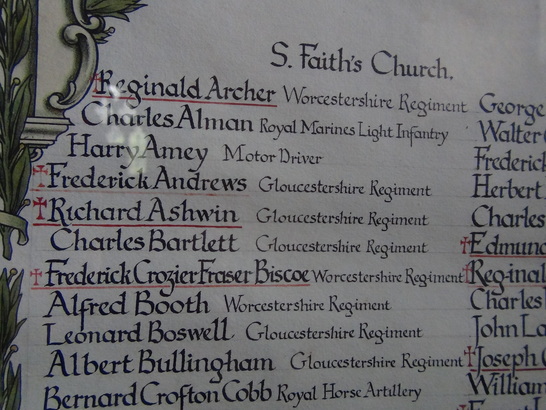 S. Faith's Church.
Reginald Archer Worcestershire Regiment
Charles Alman Royal Marines Light Infantry
Harry Amey Motor Driver
Frederick Andrews Gloucestershire Regiment
Richard Ashwin Gloucestershire Regiment
Charles Bartlett Gloucestershire Regiment
Frederick Crozier Fraser Biscoe Worcestershire Regiment
Alfred Booth Worcestershire Regiment
Leonard Boswell Gloucestershire Regiment
Albert Bullingham Gloucestershire Regiment
Bernard Crofton Cobb Royal Horse Artillery
George
Walter
Frederick
Herbert
Charles
Edmund
Reginal
Charles
John
Joseph
William